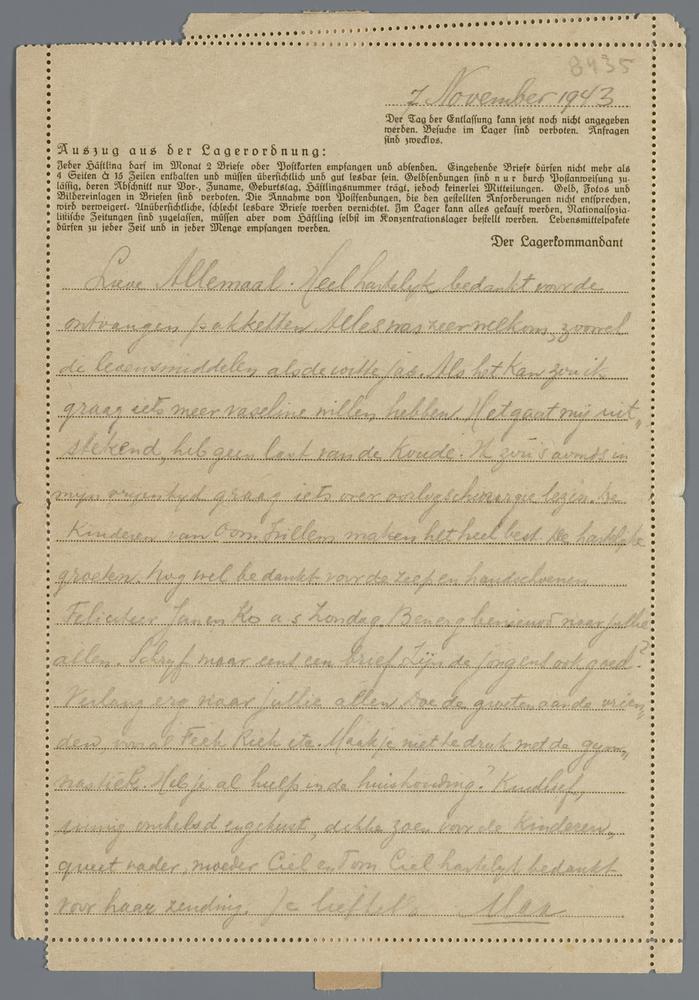 8435
7 November 1943
Der Tag der Entlassung kann jetzt noch nicht angegeben
werden. Besuche im Lager sind verboten. Anfragen
sind zwecklos.
Auszug aus der Lagerordnung:
Jeder Häftling darf im Monat 2 Briefe oder Postkarten empfangen und absenden. Eingehende Briefe dürfen nicht mehr als
4 Seiten à 15 Zeilen enthalten und müssen übersichtlich und gut lesbar sein. Geldsendungen sind nur durch Postanweisung zu-
lässig, deren Abschnitt nur Vor-, Zuname, Geburtstag, Häftlingsnummer trägt, jedoch keinerlei Mitteilungen. Geld, Fotos und
Bildereinlagen in Briefen sind verboten. Die Annahme von Postsendungen, die den gestellten Anforderungen nicht entsprechen,
wird verweigert. Unübersichtliche, schlecht lesbare Briefe werden vernichtet. Im Lager kann alles gekauft werden. Nationalsozia-
listische Zeitungen sind zugelassen, müssen aber vom Häftling selbst im Konzentrationslager bestellt werden. Lebensmittelpakete
dürfen zu jeder Zeit und in jeder Menge empfangen werden.
Der Lagerkommandant
Lieve Allemaal. Heel hartelijk bedankt voor de
ontvangen pakketten Alles was zeer welkom, zoowel
de levensmiddelen als de witte jas. Als het kan zou ik
graag iets meer vaseline willen hebben. Het gaat mij uit„
stekend, heb geen last van de Koude. Ik zou 's avonds in
mijn vrijen tijd graag iets over oorlogschirurgie lezen. De
Kinderen van Oom Willem maken het heel best. De hartelijke
groeten. Nog wel bedankt voor de zeep en handschoenen
Feliciteer Jan en Ko a s Zondag. Ben erg benieuwd naar jullie
allen. Schrijf maar eens een brief. Zijn de jongens ook goed?
Verlang erg naar jullie allen. Doe de groeten aan de vrien„
den, vooral Rich etc. Maak je niet te druk met de gym„
nastiek. Heb je al hulp in de huishouding? Kindlief,
innig omhelsd en gekust, dikke zoen voor de Kinderen,
groet vader, moeder Ciel en Tom Ciel hartelijk bedankt
voor haar zending. Je liefste Max